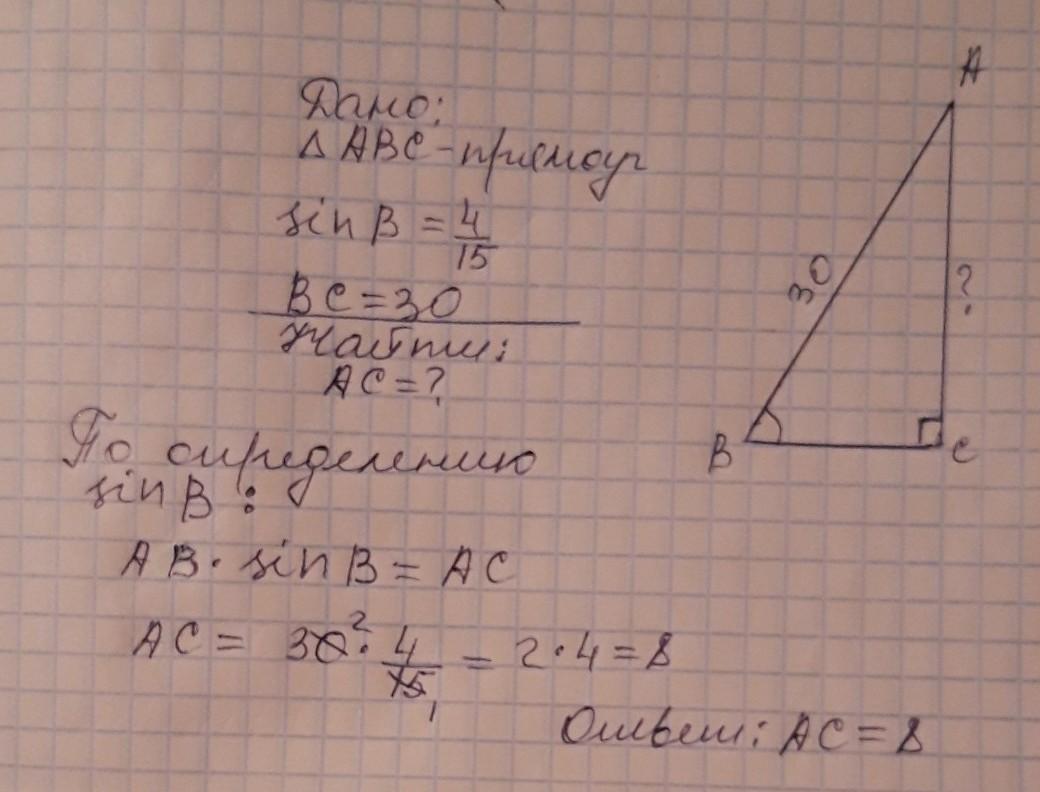 Дано:
△ ABC - прямоуг
sin B = 4/15
BC = 30
Найти:
AC = ?
A
30
?
B
C
По определению
sin B :
AB · sin B = AC
AC = 30² · 4/15₁ = 2 · 4 = 8
Ответ: AC = 8